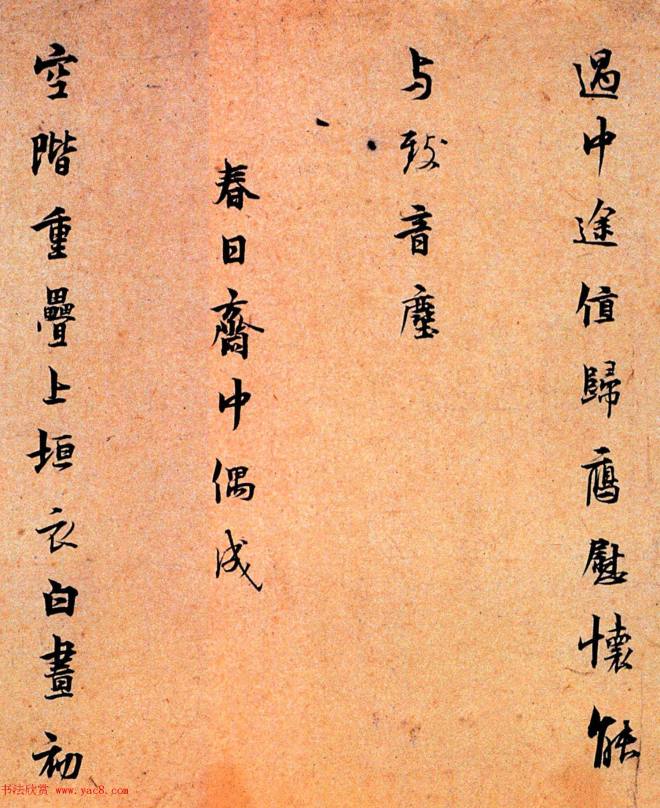 過中途值歸鴈慰懷能
与致音塵
春日齋中偶成
空階重疊上垣衣白晝初
书法欣赏 www.yac8.com